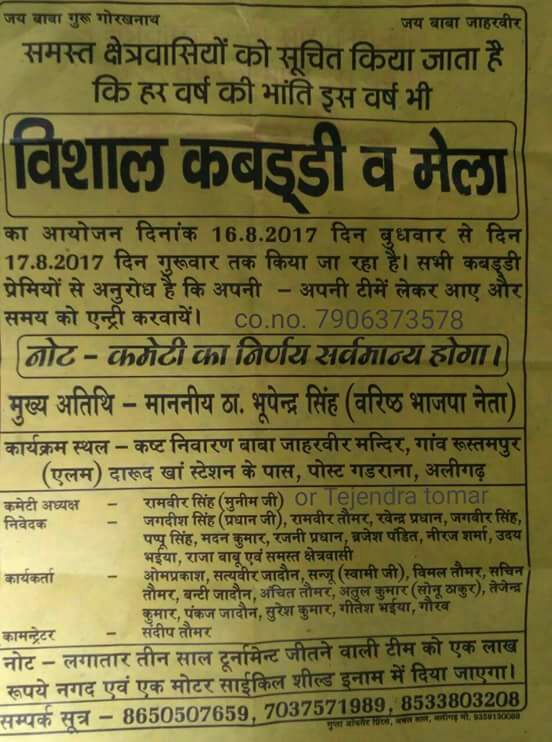 जय बाबा गुरू गोरखनाथ
जय बाबा जाहरवीर
समस्त क्षेत्रवासियों को सूचित किया जाता है
कि हर वर्ष की भांति इस वर्ष भी
विशाल कबड्डी व मेला
का आयोजन दिनांक 16.8.2017 दिन बुधवार से दिन
17.8.2017 दिन गुरूवार तक किया जा रहा है। सभी कबड्डी
प्रेमियों से अनुरोध है कि अपनी – अपनी टीमें लेकर आए और
समय को एन्ट्री करवायें। co.no. 7906373578
नोट – कमेटी का निर्णय सर्वमान्य होगा।
मुख्य अतिथि – माननीय ठा. भूपेन्द्र सिंह (वरिष्ठ भाजपा नेता)
कार्यक्रम स्थल – कष्ट निवारण बाबा जाहरवीर मन्दिर, गांव रूस्तमपुर
(एलम) दारूद खां स्टेशन के पास, पोस्ट गडराना, अलीगढ़
कमेटी अध्यक्ष – रामवीर सिंह (मुनीम जी) or Tejendra tomar
निवेदक – जगदीश सिंह (प्रधान जी), रामवीर तौमर, रवेन्द्र प्रधान, जगवीर सिंह,
पप्पू सिंह, मदन कुमार, रजनी प्रधान, ब्रजेश पंडित, नीरज शर्मा, उदय
भईया, राजा बाबू एवं समस्त क्षेत्रवासी
कार्यकर्ता – ओमप्रकाश, सत्यवीर जादौन, सन्जू (स्वामी जी), विमल तौमर, सचिन
तौमर, बन्टी जादौन, अंचित तौमर, अतुल कुमार (सोनू ठाकुर), तेजेन्द्र
कुमार, पंकज जादौन, सुरेश कुमार, गीतेश भईया, गौरव
कामन्ट्रेटर – संदीप तौमर
नोट – लगातार तीन साल टूर्नामेन्ट जीतने वाली टीम को एक लाख
रूपये नगद एवं एक मोटर साईकिल शील्ड इनाम में दिया जाएगा।
सम्पर्क सूत्र – 8650507659, 7037571989, 8533803208
गुप्ता ऑफसैट प्रिंटर्स, अचल ताल, अलीगढ़ मो. 9359130088